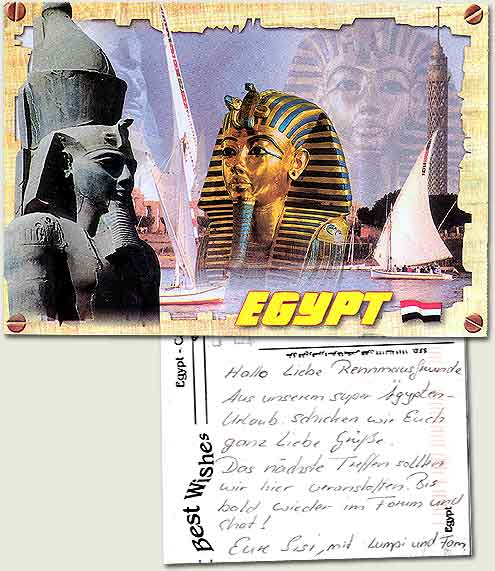 EGYPT
Egypt - C
Best Wishes
Egypt
Hallo Liebe Rennmausfreunde
Aus unserem super Ägypten-
Urlaub schicken wir Euch
ganz Liebe Grüße.
Das nächste Treffen sollten
wir hier veranstalten. Bis
bald wieder im Forum und
chat!
Eure Sisi, mit Lumpi und Fam